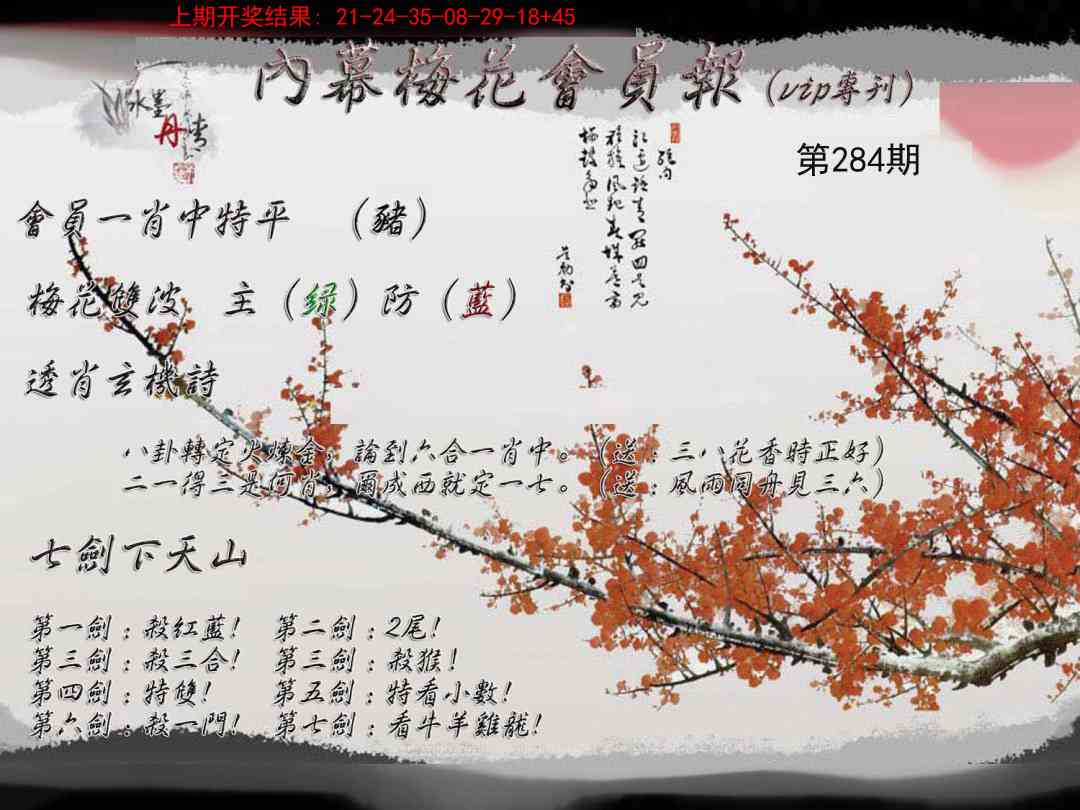 上期开奖结果: 21-24-35-08-29-18+45
內幕梅花會員報(vip專刊)
水墨
丹青
第284期
會員一肖中特平 (豬)
梅花雙波 主(绿)防(藍)
透肖玄機詩
八卦轉定火煉金，論到六合一肖中。(送:三八花香時正好)
二一得三是何肖，爾成西就定一七。(送:風雨同舟見三六)
七劍下天山
第一劍:殺紅藍! 第二劍:2尾!
第三劍:殺三合! 第三劍:殺猴!
第四劍:特雙! 第五劍:特看小數!
第六劍:殺一門! 第七劍:看牛羊雞龍!